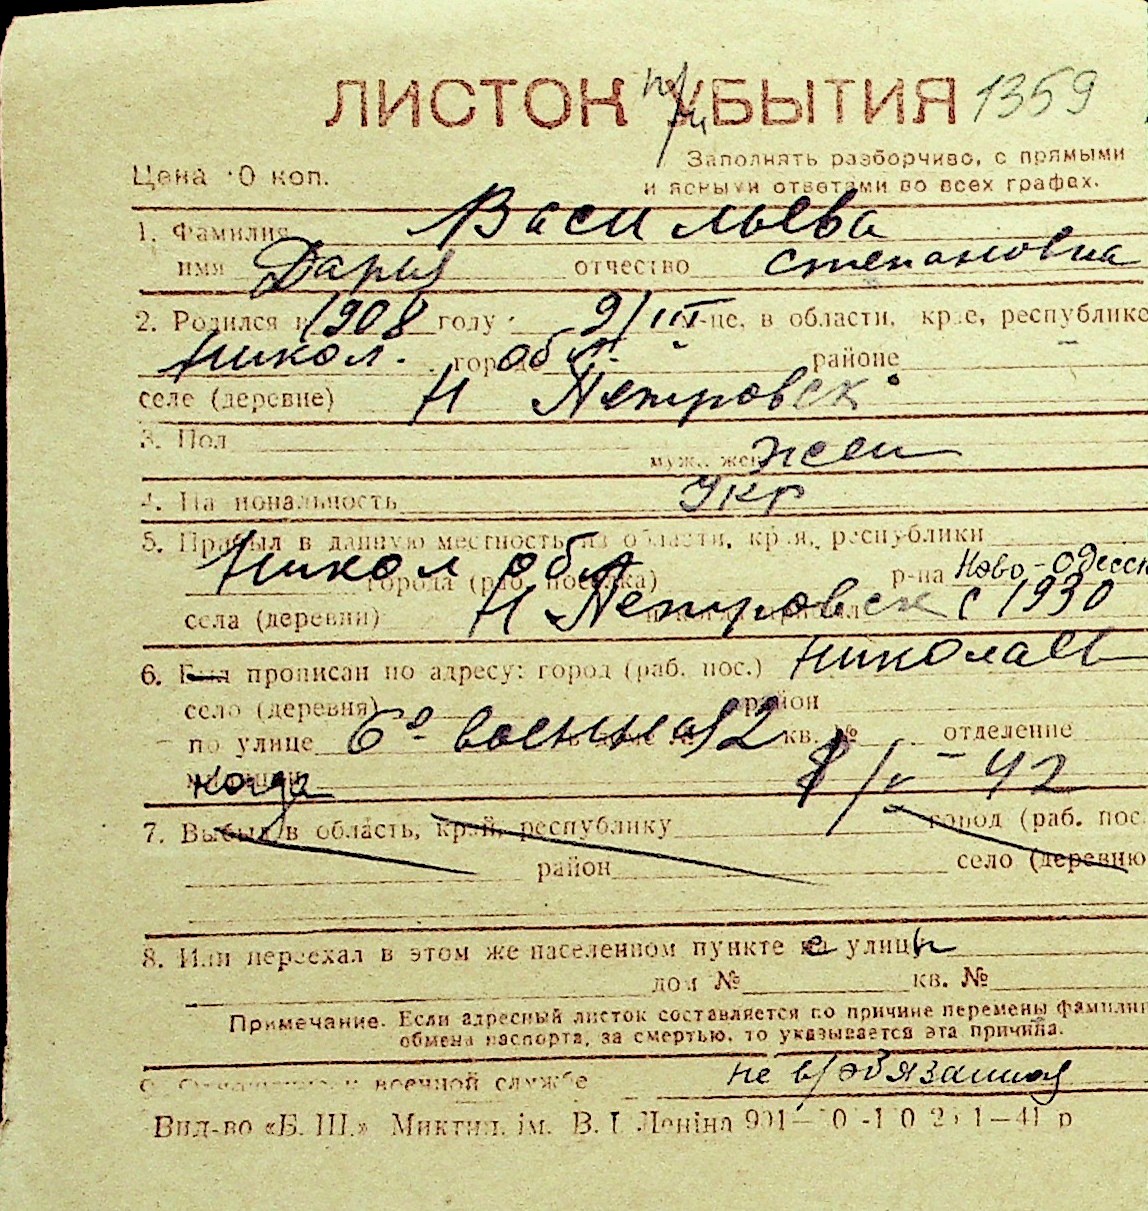 ЛИСТОК УБЫТИЯ при 1359
Цена 10 коп. Заполнять разборчиво, с прямыми
и ясными ответами во всех графах.
1. Фамилия Васильева
имя Дарья отчество Степановна
2. Родился в 1908 году 9/III м-це, в области, крае, республике
Никол. город обл. районе
селе (деревне) Н Петровск
3. Пол муж., жен. жен
4. Национальность Укр
5. Прибыл в данную местность из области, края, республики
Никол обл города (раб. поселка) р-на Ново-Одесск
села (деревни) Н Петровск с 1930
6. Был прописан по адресу: город (раб. пос.) Николаев
село (деревня) район
по улице 6я военная 2 кв. № отделение
когда 8/V-42
7. Выбыл в область, край, республику город (раб. пос.
район село (деревню
8. Или переехал в этом же населенном пункте с улицы
дом № кв. №
Примечание. Если адресный листок составляется по причине перемены фамилии
обмена паспорта, за смертью, то указывается эта причина.
9. Отношение к военной службе не в/обязанная
Вид-во «Б. Ш.» Миктип. ім. В. І Леніна 1—41 р